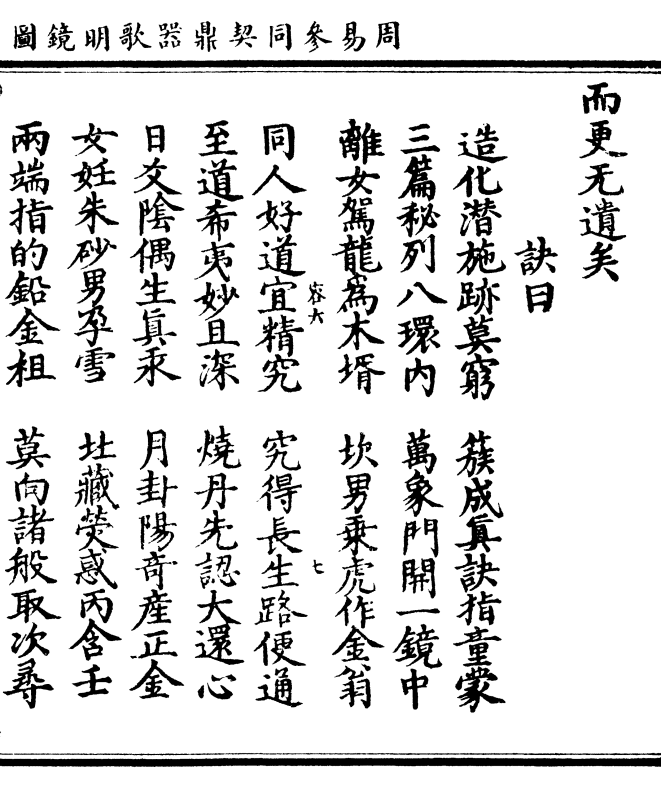 周易參同契鼎器歌明鏡圖
而更无遺矣
訣曰
造化潛施跡莫窮 簇成眞訣指童蒙
三篇秘列八環內 萬象門開一鏡中
離女駕龍爲木壻 坎男乗虎作金翁
容六 七
同人好道宜精究 究得長生路便通
至道希夷妙且深 燒丹先認大還心
日爻陰偶生眞汞 月卦陽竒產正金
女妊朱砂男孕雪 北藏熒惑丙含壬
兩端指的鉛金祖 莫向諸般取次尋